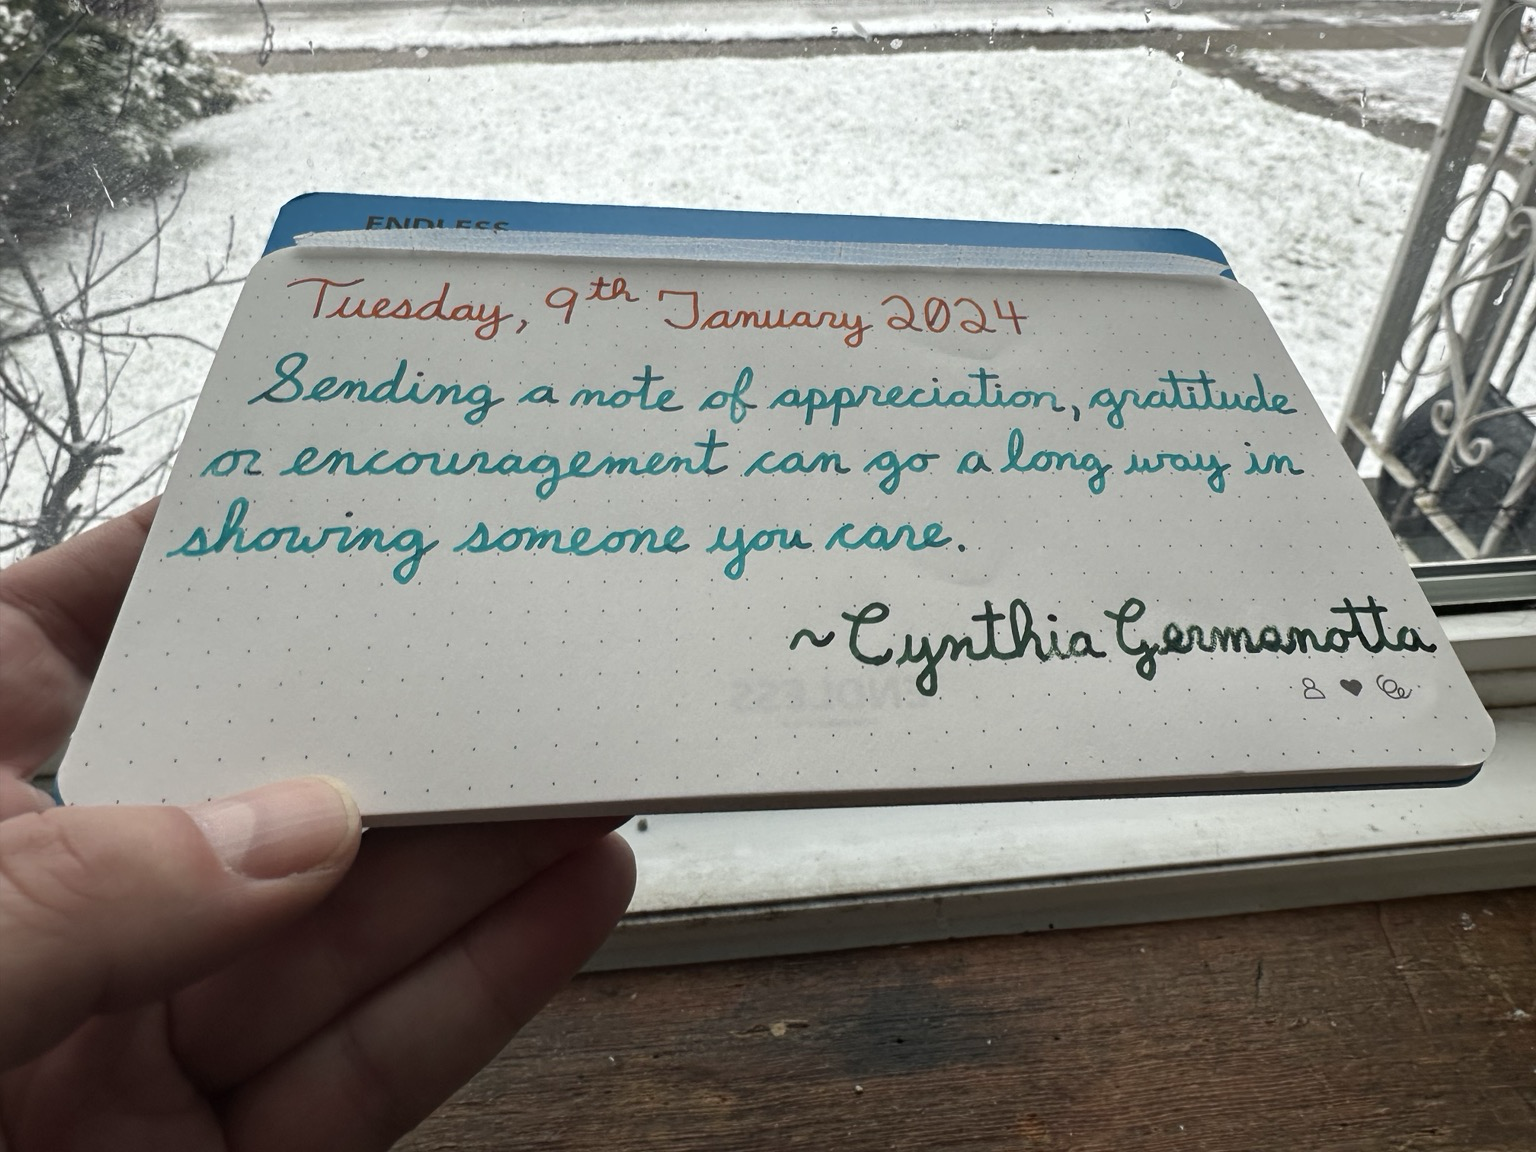 ENDLESS
Tuesday, 9th January 2024
Sending a note of appreciation, gratitude
or encouragement can go a long way in
showing someone you care.
~Cynthia Germanotta
ENDLESS